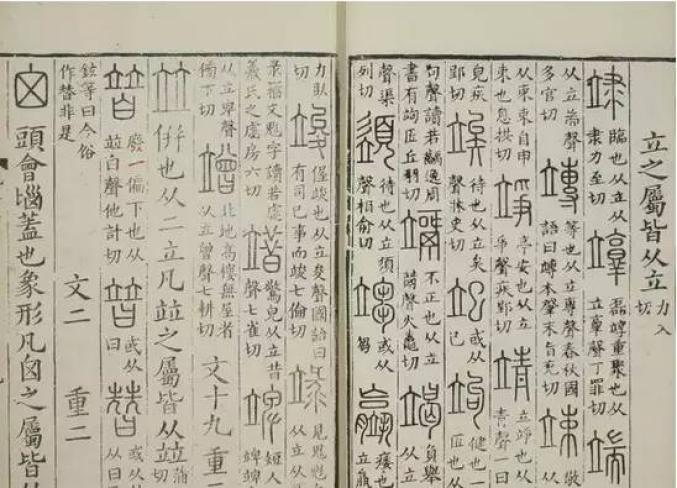 立之屬皆从立 力入切
𥩠 臨也从立从隶力至切 𥪕 磊𥪕重聚也从立𦎧聲丁罪切 端
从立耑聲多官切 竱 等也从立專聲春秋國語曰竱本肇末旨兖切 竦 敬也从
从束束自申束也息拱切 竫 亭安也从立爭聲疾郢切 靖 立竫也从立青聲一曰
皃疾郢切 竢 待也从立矣聲牀史切 或从巳 竘 健也一曰匠也从
句聲讀若齲逸周書有竘匠丘羽切 不正也从立聲火鼃切 竭 負舉也从立
聲渠列切 待也从立須聲相俞切 或从芻聲 痿也从立
力臥切 竣 偓竣也从立夋聲國語曰有司已事而竣七倫切 見鬼鬽从立从
彔籒文鬽字讀若虙羲氏之虙房六切 䇎 驚皃从立昔聲七雀切 短人立竮竮
从立卑聲傍下切 竲 北地高樓無屋者从立曾聲七耕切 文十九 重二
竝 併也从二立凡竝之屬皆从竝 蒲
暜 廢一偏下也从竝白聲他計切 或从曰 或从从曰
鉉等曰今俗作替非是 文二 重二
囟 頭會匘蓋也象形凡囟之屬皆从